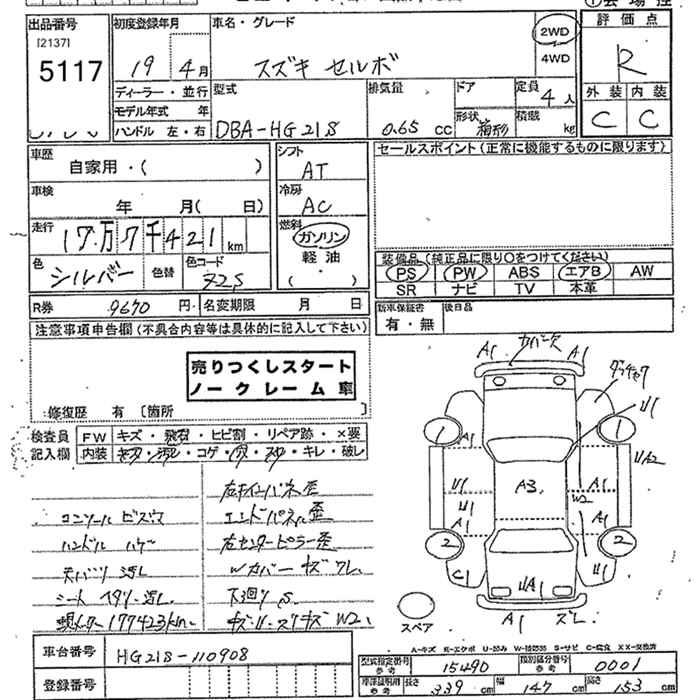 出品番号 初度登録年月 車名・グレード 2WD 評価点
[2137]
5117 19年4月 スズキ セルボ 4WD R
ディーラー・並行 型式 排気量 ドア 定員 4人 外装 内装
モデル年式 年 形状 箱形 積載 kg C C
ハンドル 左・右 DBA-HG21S 0.65 cc
車歴 自家用・( ) シフト AT セールスポイント(正常に機能するものに限ります)
車検 年 月( 日) 冷房 AC
走行 17万7千421km 燃料 ガソリン
軽油
( )
色 シルバー 色替 色コード Z2S
装備品(純正品に限り○をつけてください)
PS PW ABS エアB AW
SR ナビ TV 本革
R券 9670円 名変期限 月 日 新車保証書 有・無 後日品
注意事項申告欄(不具合内容等は具体的に記入して下さい)
売りつくしスタート
ノークレーム車
修復歴 有〔箇所 〕
検査員 FW キズ・飛石・ヒビ割・リペア跡・×要
記入欄 内装 キズ・汚レ・コゲ・穴・スレ・キレ・破レ
右インパネ歪
コンソール ビスウ エンドパネル歪
ハンドル ハゲ 右センターピラー歪
天バリ 汚レ Wカバー キズ ワレ
シート ヘタリ・汚レ 下廻り S
現メーター177423km W2
A1 A1
1 A1 U1
UA2
A3 W2
U1 U1
A1 A1
2 2
C1 UA1 U1
スペア A1 ズレ
A-キズ E-エクボ U-凹み S-サビ C-腐食 XX-交換済
車台番号 HG21S-110908
登録番号
型式指定番号 参考 15490 類別区分番号 参考 0001
参考 長さ 339cm 幅 147cm 高さ 153cm